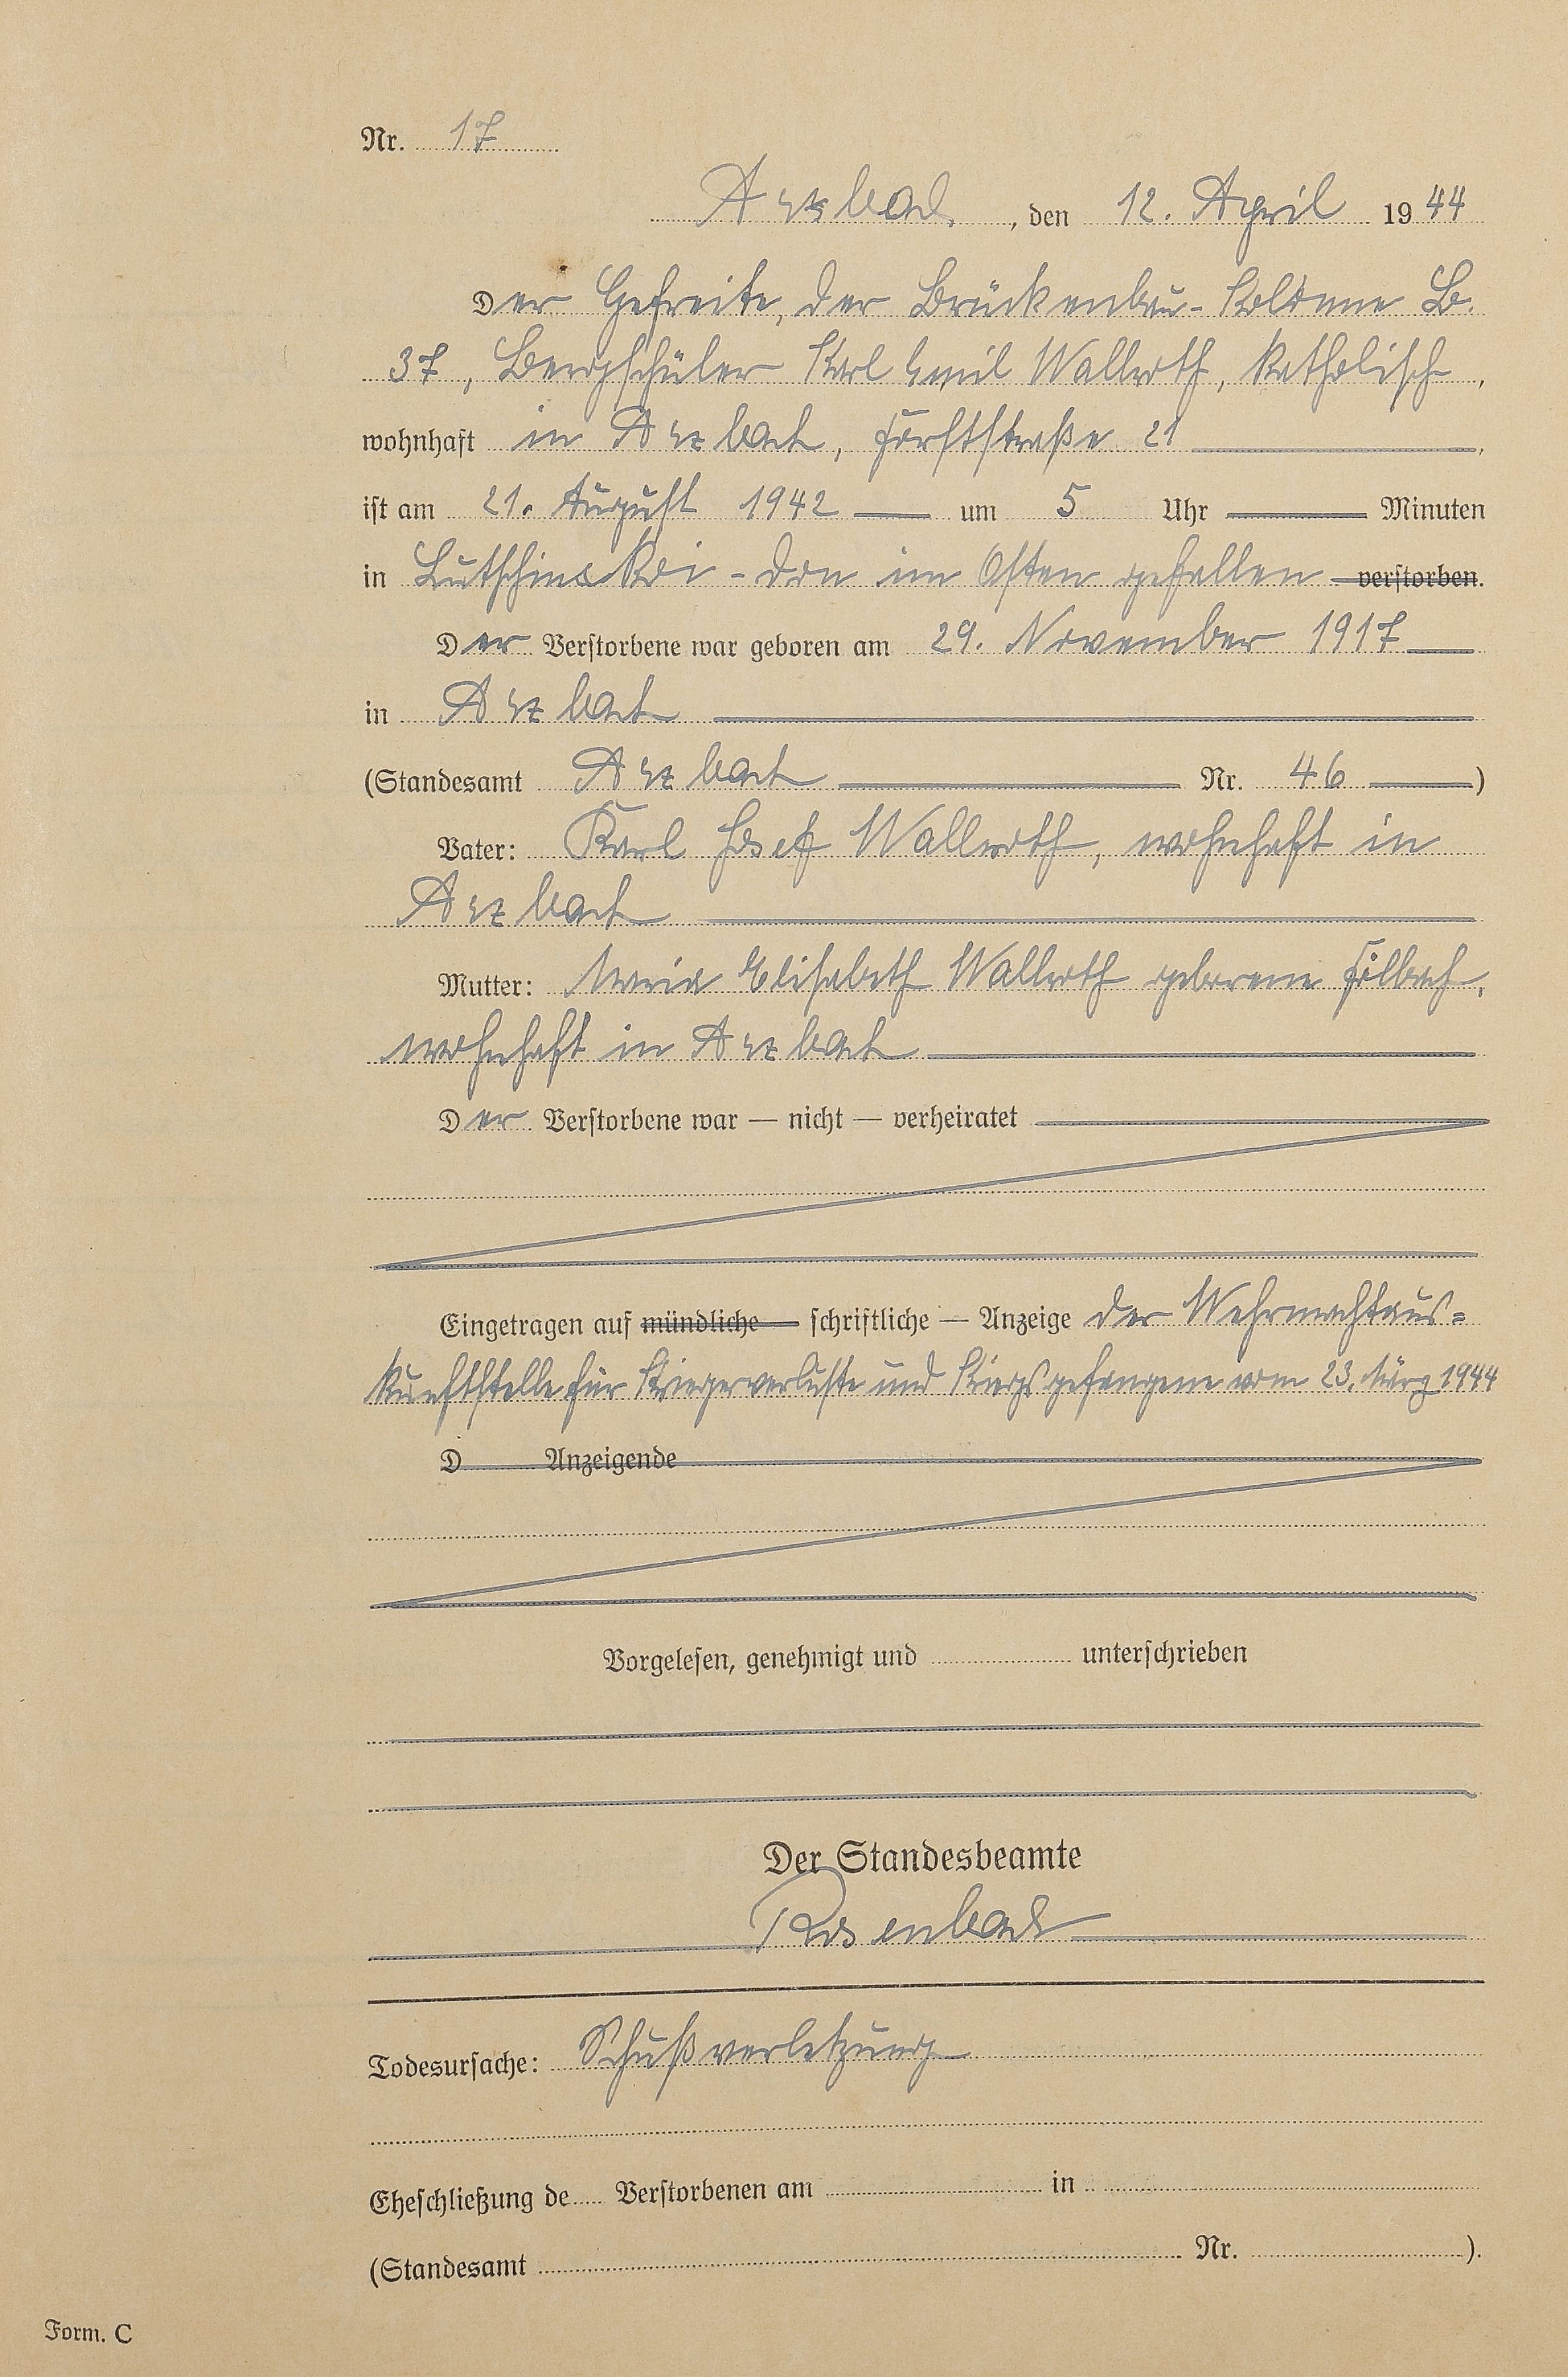 Nr. 17
Arzbach, den 12. April 1944
Der Gefreite, der Brückenbau-Kolonne B.
37, Bergschüler Karl Emil Wallroth, katholisch,
wohnhaft in Arzbach, Forststraße 21
ist am 21. August 1942 um 5 Uhr Minuten
in Lutschinskoi-Don im Osten gefallen verstorben.
Der Verstorbene war geboren am 29. November 1917
in Arzbach
(Standesamt Arzbach Nr. 46)
Vater: Karl Josef Wallroth, wohnhaft in
Arzbach
Mutter: Maria Elisabeth Wallroth geborene
wohnhaft in Arzbach
Der Verstorbene war — nicht — verheiratet
Eingetragen auf mündliche — schriftliche — Anzeige der Wehrmachtaus=
kunftstelle für Kriegerverluste und Kriegsgefangene vom 23. März 1944
D Anzeigende
Vorgelesen, genehmigt und unterschrieben
Der Standesbeamte
Rosenbach
Todesursache: Schußverletzung
Eheschließung de Verstorbenen am in
(Standesamt Nr. ).
Form. C